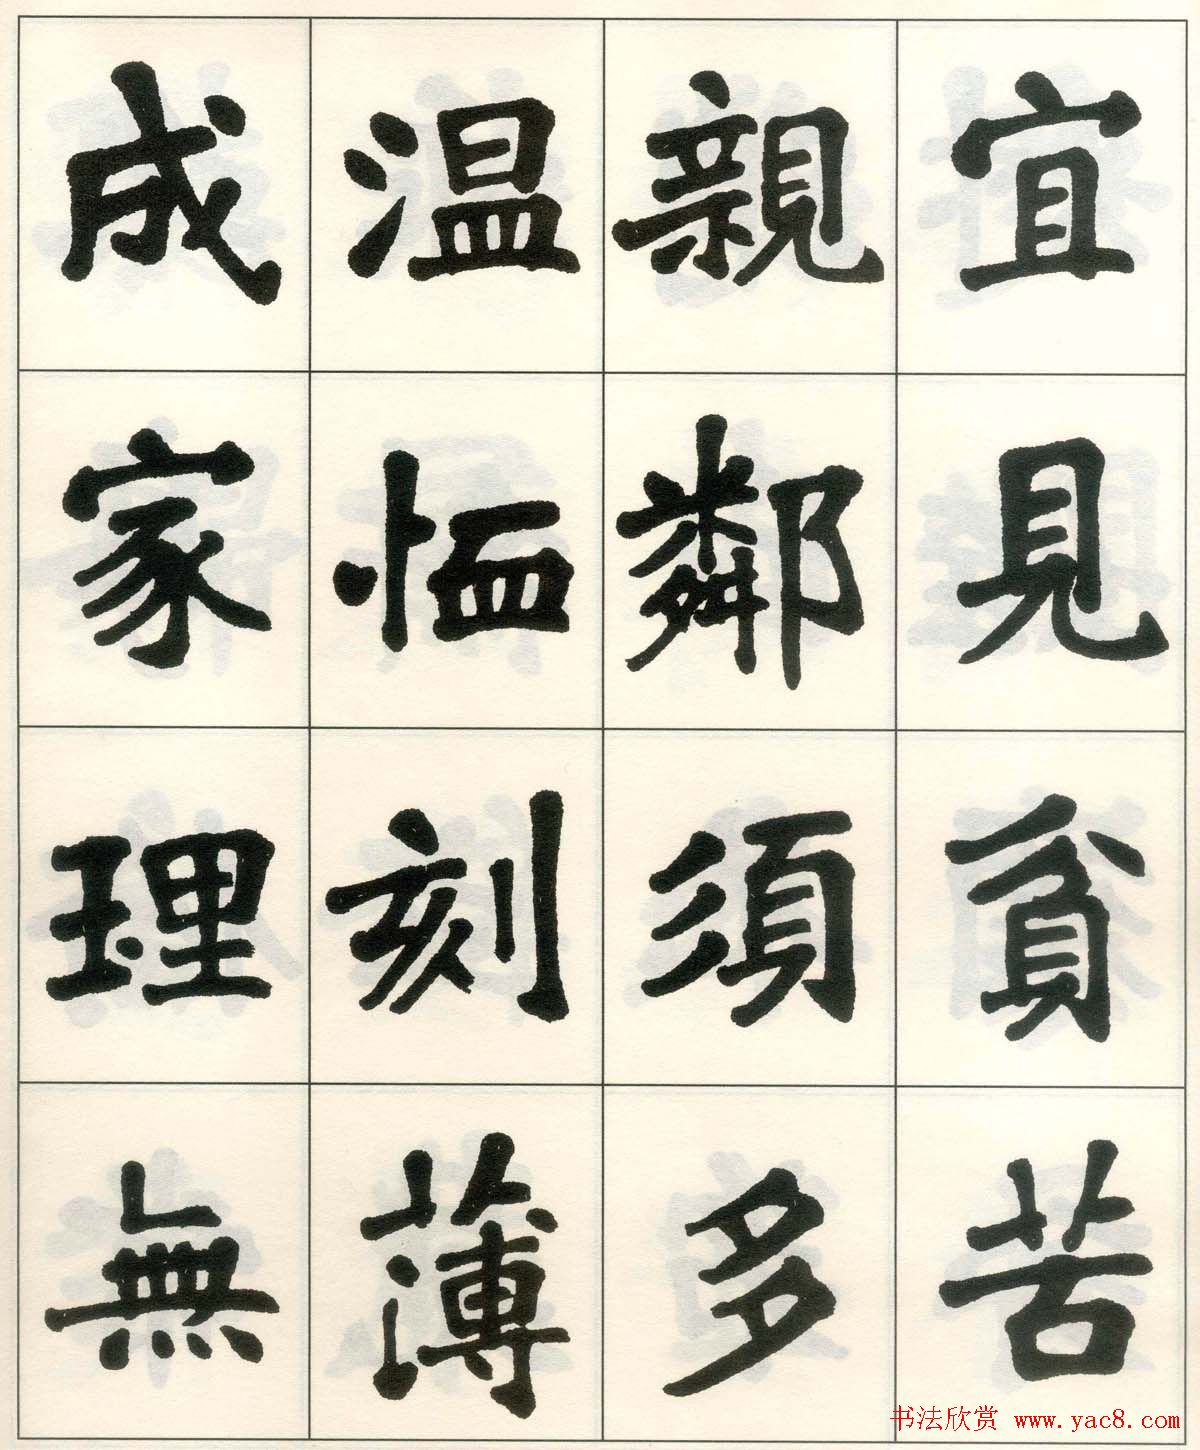 宜見貧苦
親鄰須多
温恤刻薄
成家理無
书法欣赏 www.yac8.com